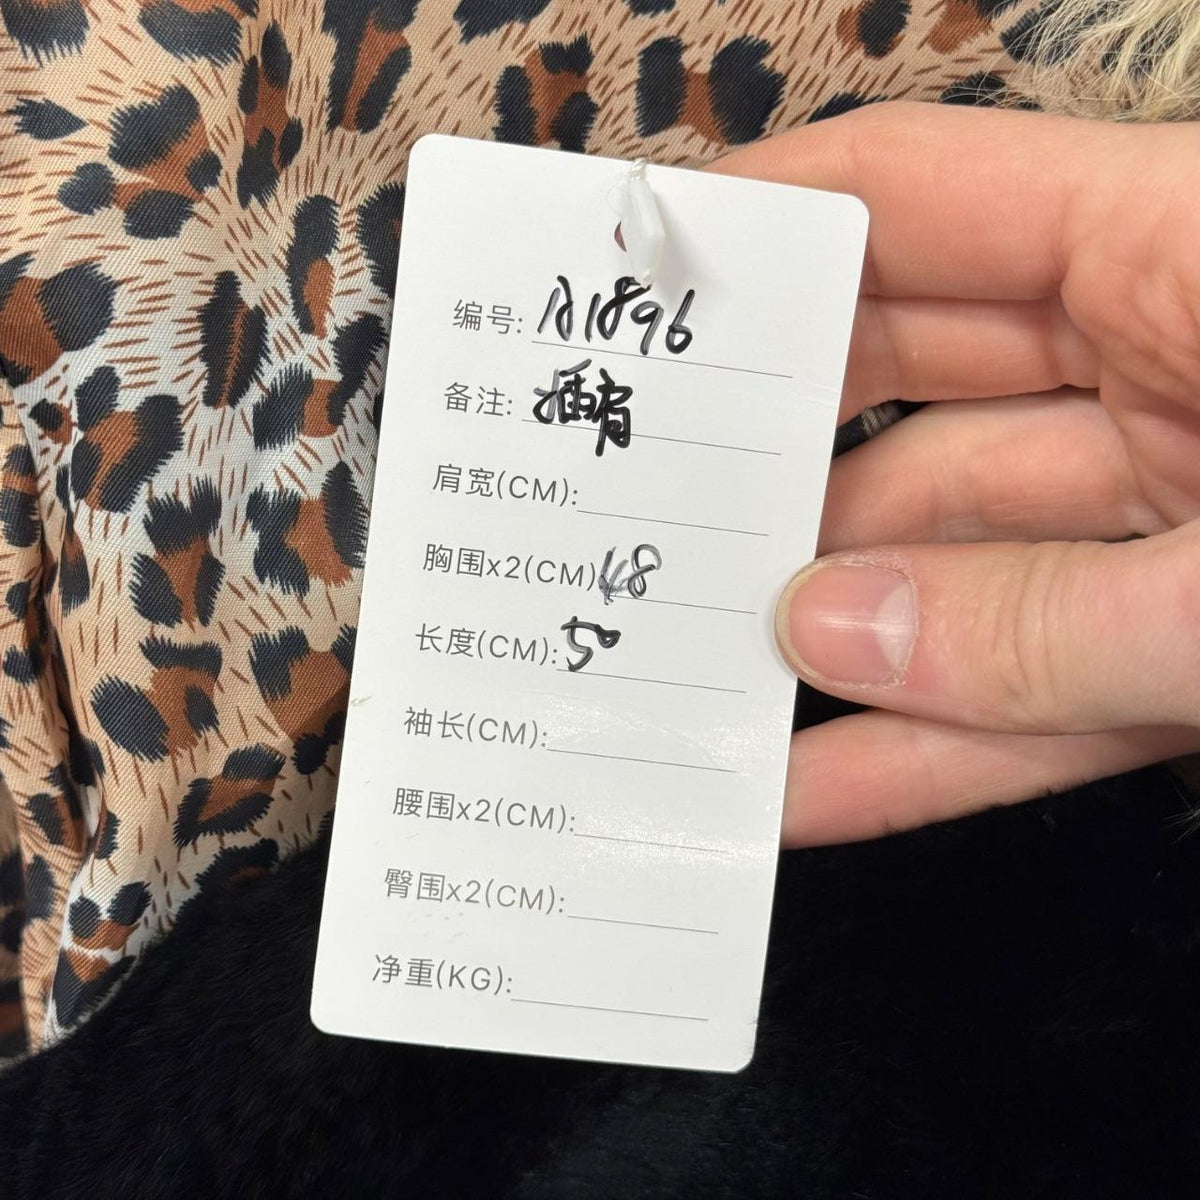 编号: A1896
备注: 插肩
肩宽(CM):
胸围x2(CM) 48
长度(CM): 50
袖长(CM):
腰围x2(CM):
臀围x2(CM):
净重(KG):